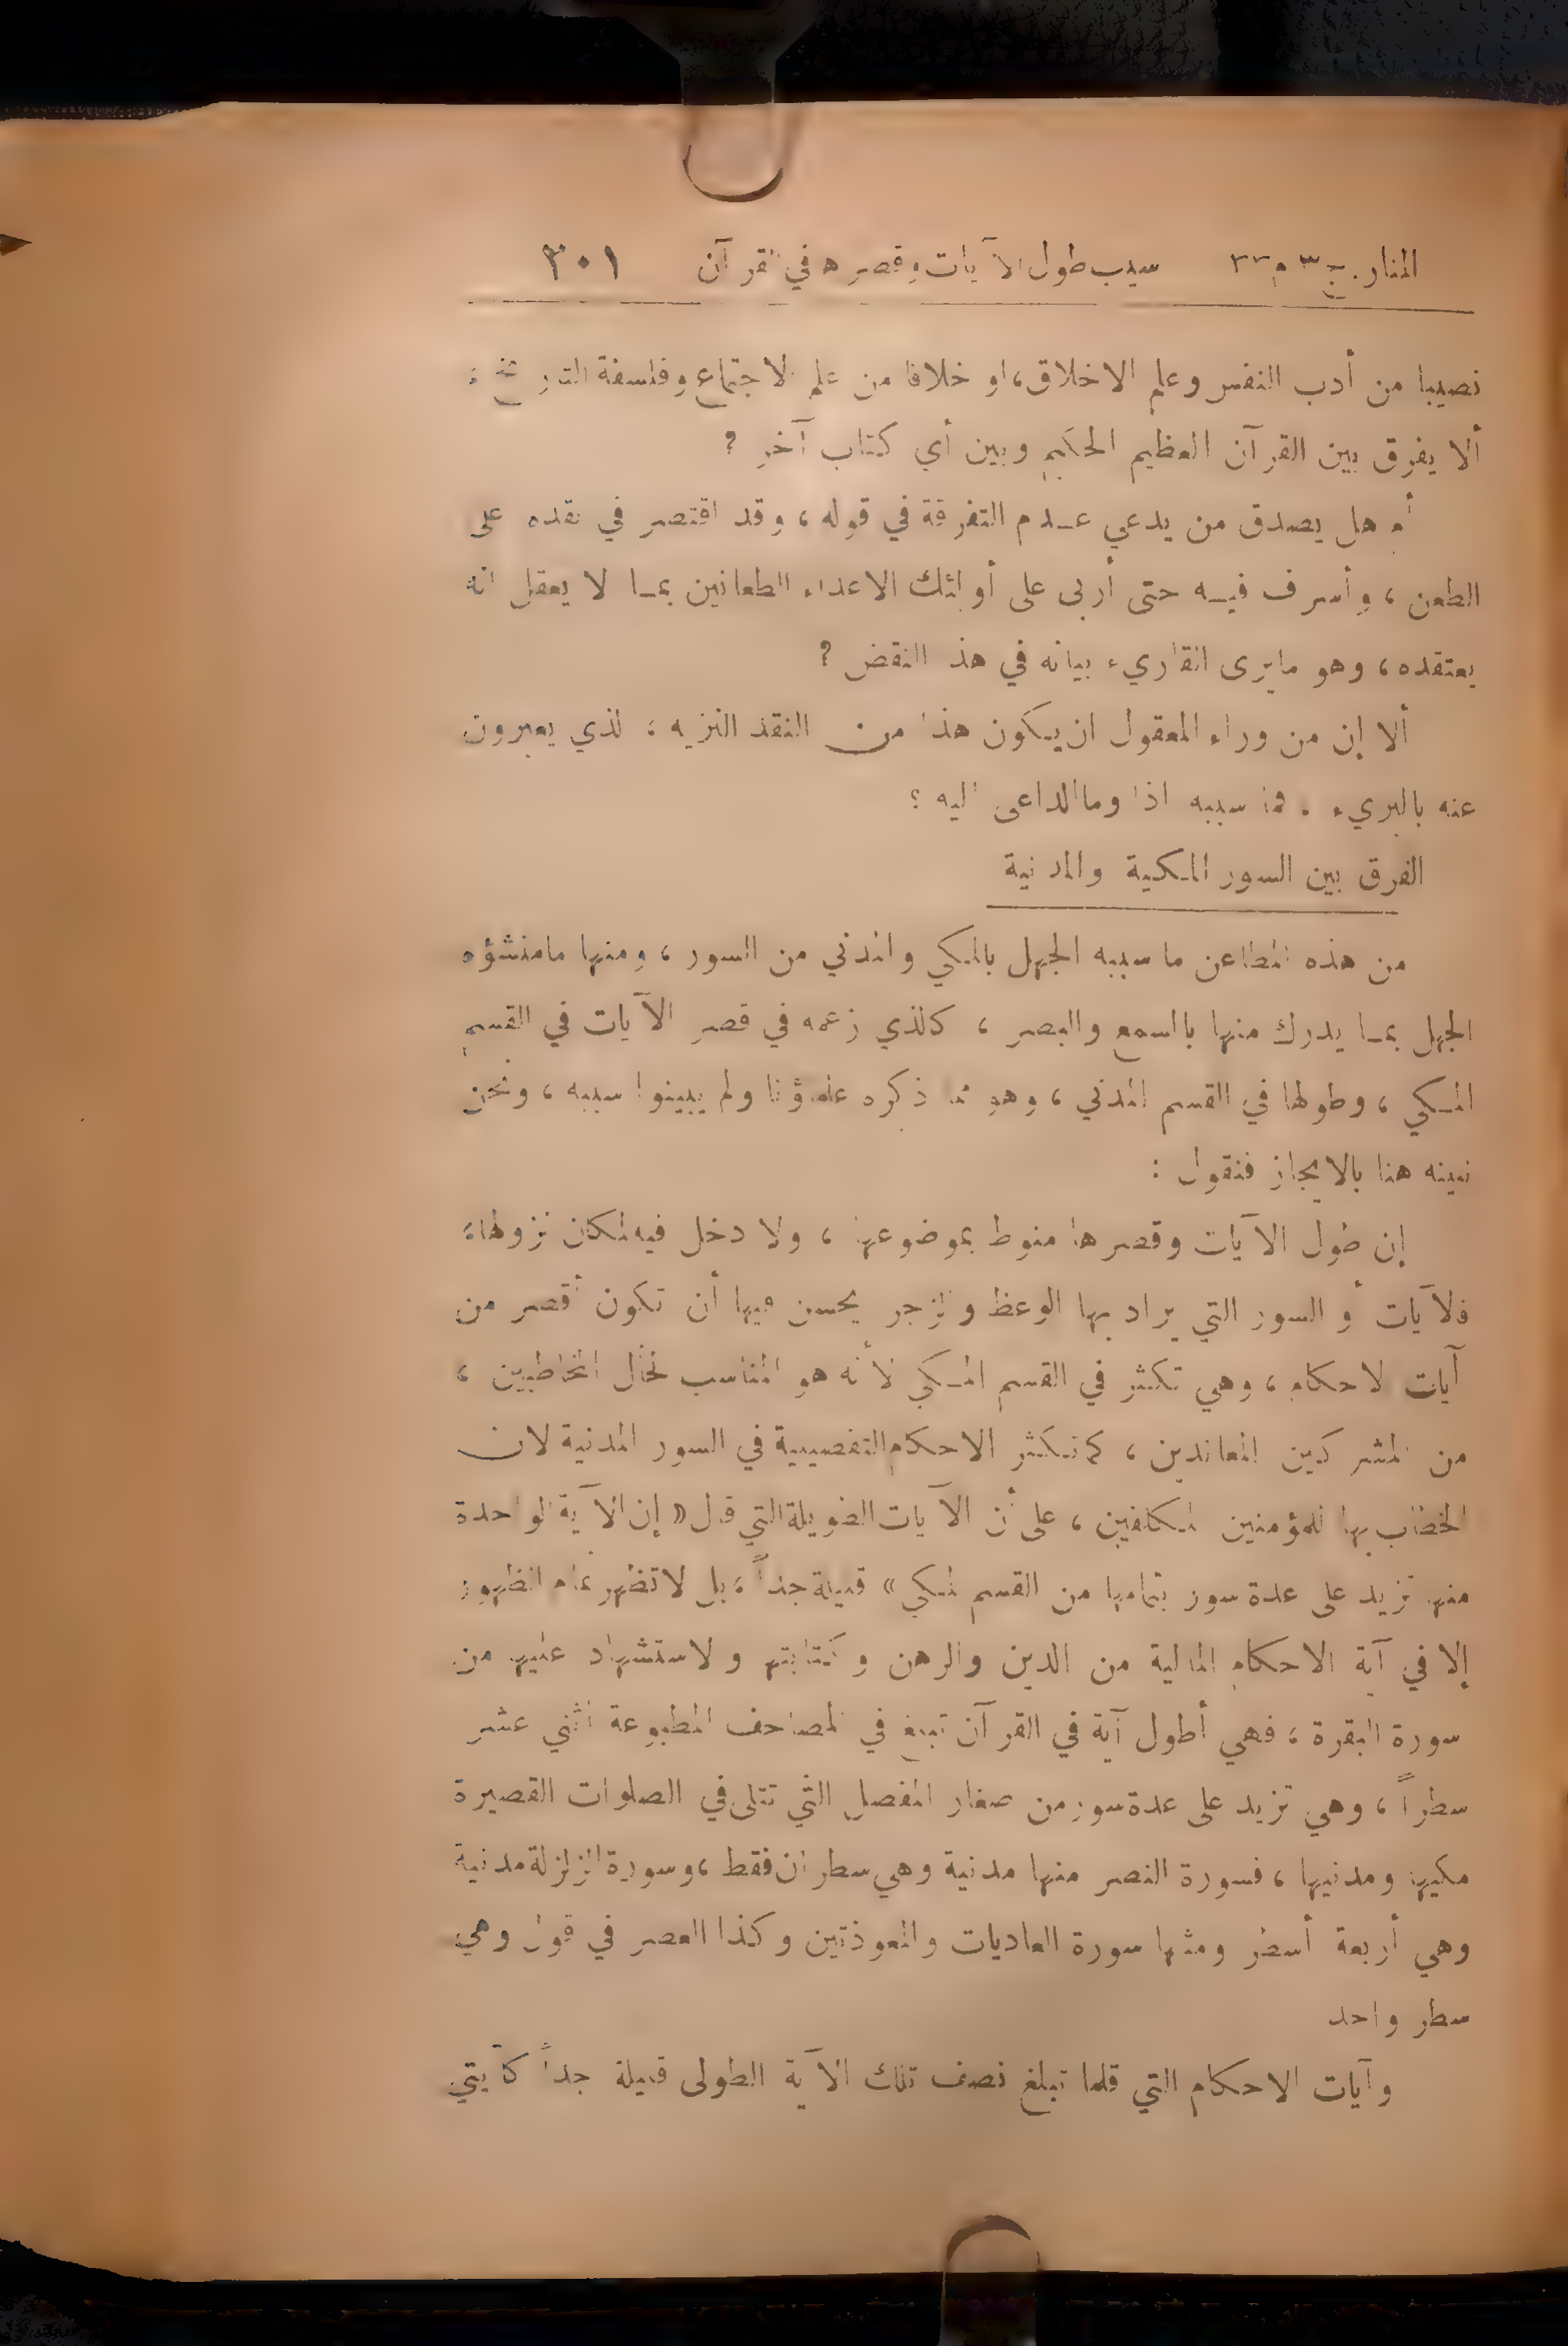 المنار. ج ٣ م ٣٢ سبب طول الآيات وقصرها في القرآن ٣٠١
نصيبا من أدب النفس وعلم الاخلاق، او خلاقا من علم الاجتماع وفلسفة التاريخ،
ألا يفرق بين القرآن العظيم الحكيم وبين أي كتاب آخر ؟
أم هل يصدق من يدعي عدم التفرقة في قوله ، وقد اقتصر في نقده على
الطعن ، وأسرف فيه حتى أربى على أولئك الاعداء الطعانين بما لا يعقل انه
يعتقده ، وهو ما يرى القاريء بيانه في هذا النقض ؟
ألا إن من وراء المعقول ان يكون هذا من النقد النزيه ، الذي يعبرون
عنه بالبريء . فما سببه اذا وما الداعى اليه ؟
الفرق بين السور المكية والمدنية
من هذه المطاعن ما سببه الجهل بالمكي والمدني من السور ، ومنها ما منشؤه
الجهل بما يدرك منها بالسمع والبصر ، كالذي زعمه في قصر الآيات في القسم
المكي ، وطولها في القسم المدني ، وهو مما ذكره علماؤنا ولم يبينوا سببه ، ونحن
نبينه هنا بالايجاز فنقول :
إن طول الآيات وقصرها منوط بموضوعها ، ولا دخل فيه لمكان نزولها،
فالآيات أو السور التي يراد بها الوعظ والزجر يحسن فيها أن تكون أقصر من
آيات الاحكام ، وهي تكثر في القسم المكي لأنه هو المناسب لحال المخاطبين ،
من المشركين المعاندين ، كما تكثر الاحكام التفصيلية في السور المدنية لان
الخطاب بها للمؤمنين المكلفين ، على أن الآيات الطويلة التي قال « إن الآية الواحدة
منها تزيد على عدة سور بتمامها من القسم المكي » قليلة جداً ، بل لا تظهر تمام الظهور
إلا في آية الاحكام المالية من الدين والرهن وكتابتها والاستشهاد عليها من
سورة البقرة ، فهي أطول آية في القرآن تبلغ في المصاحف المطبوعة اثني عشر
سطراً ، وهي تزيد على عدة سور من صغار المفصل التي تتلى في الصلوات القصيرة
مكيها ومدنيها ، فسورة النصر منها مدنية وهي سطران فقط ، وسورة الزلزلة مدنية
وهي أربعة أسطر ومثلها سورة العاديات والمعوذتين وكذا العصر في قول وهي
سطر واحد
وآيات الاحكام التي قلما تبلغ نصف تلك الآية الطولى قليلة جداً كآيتي